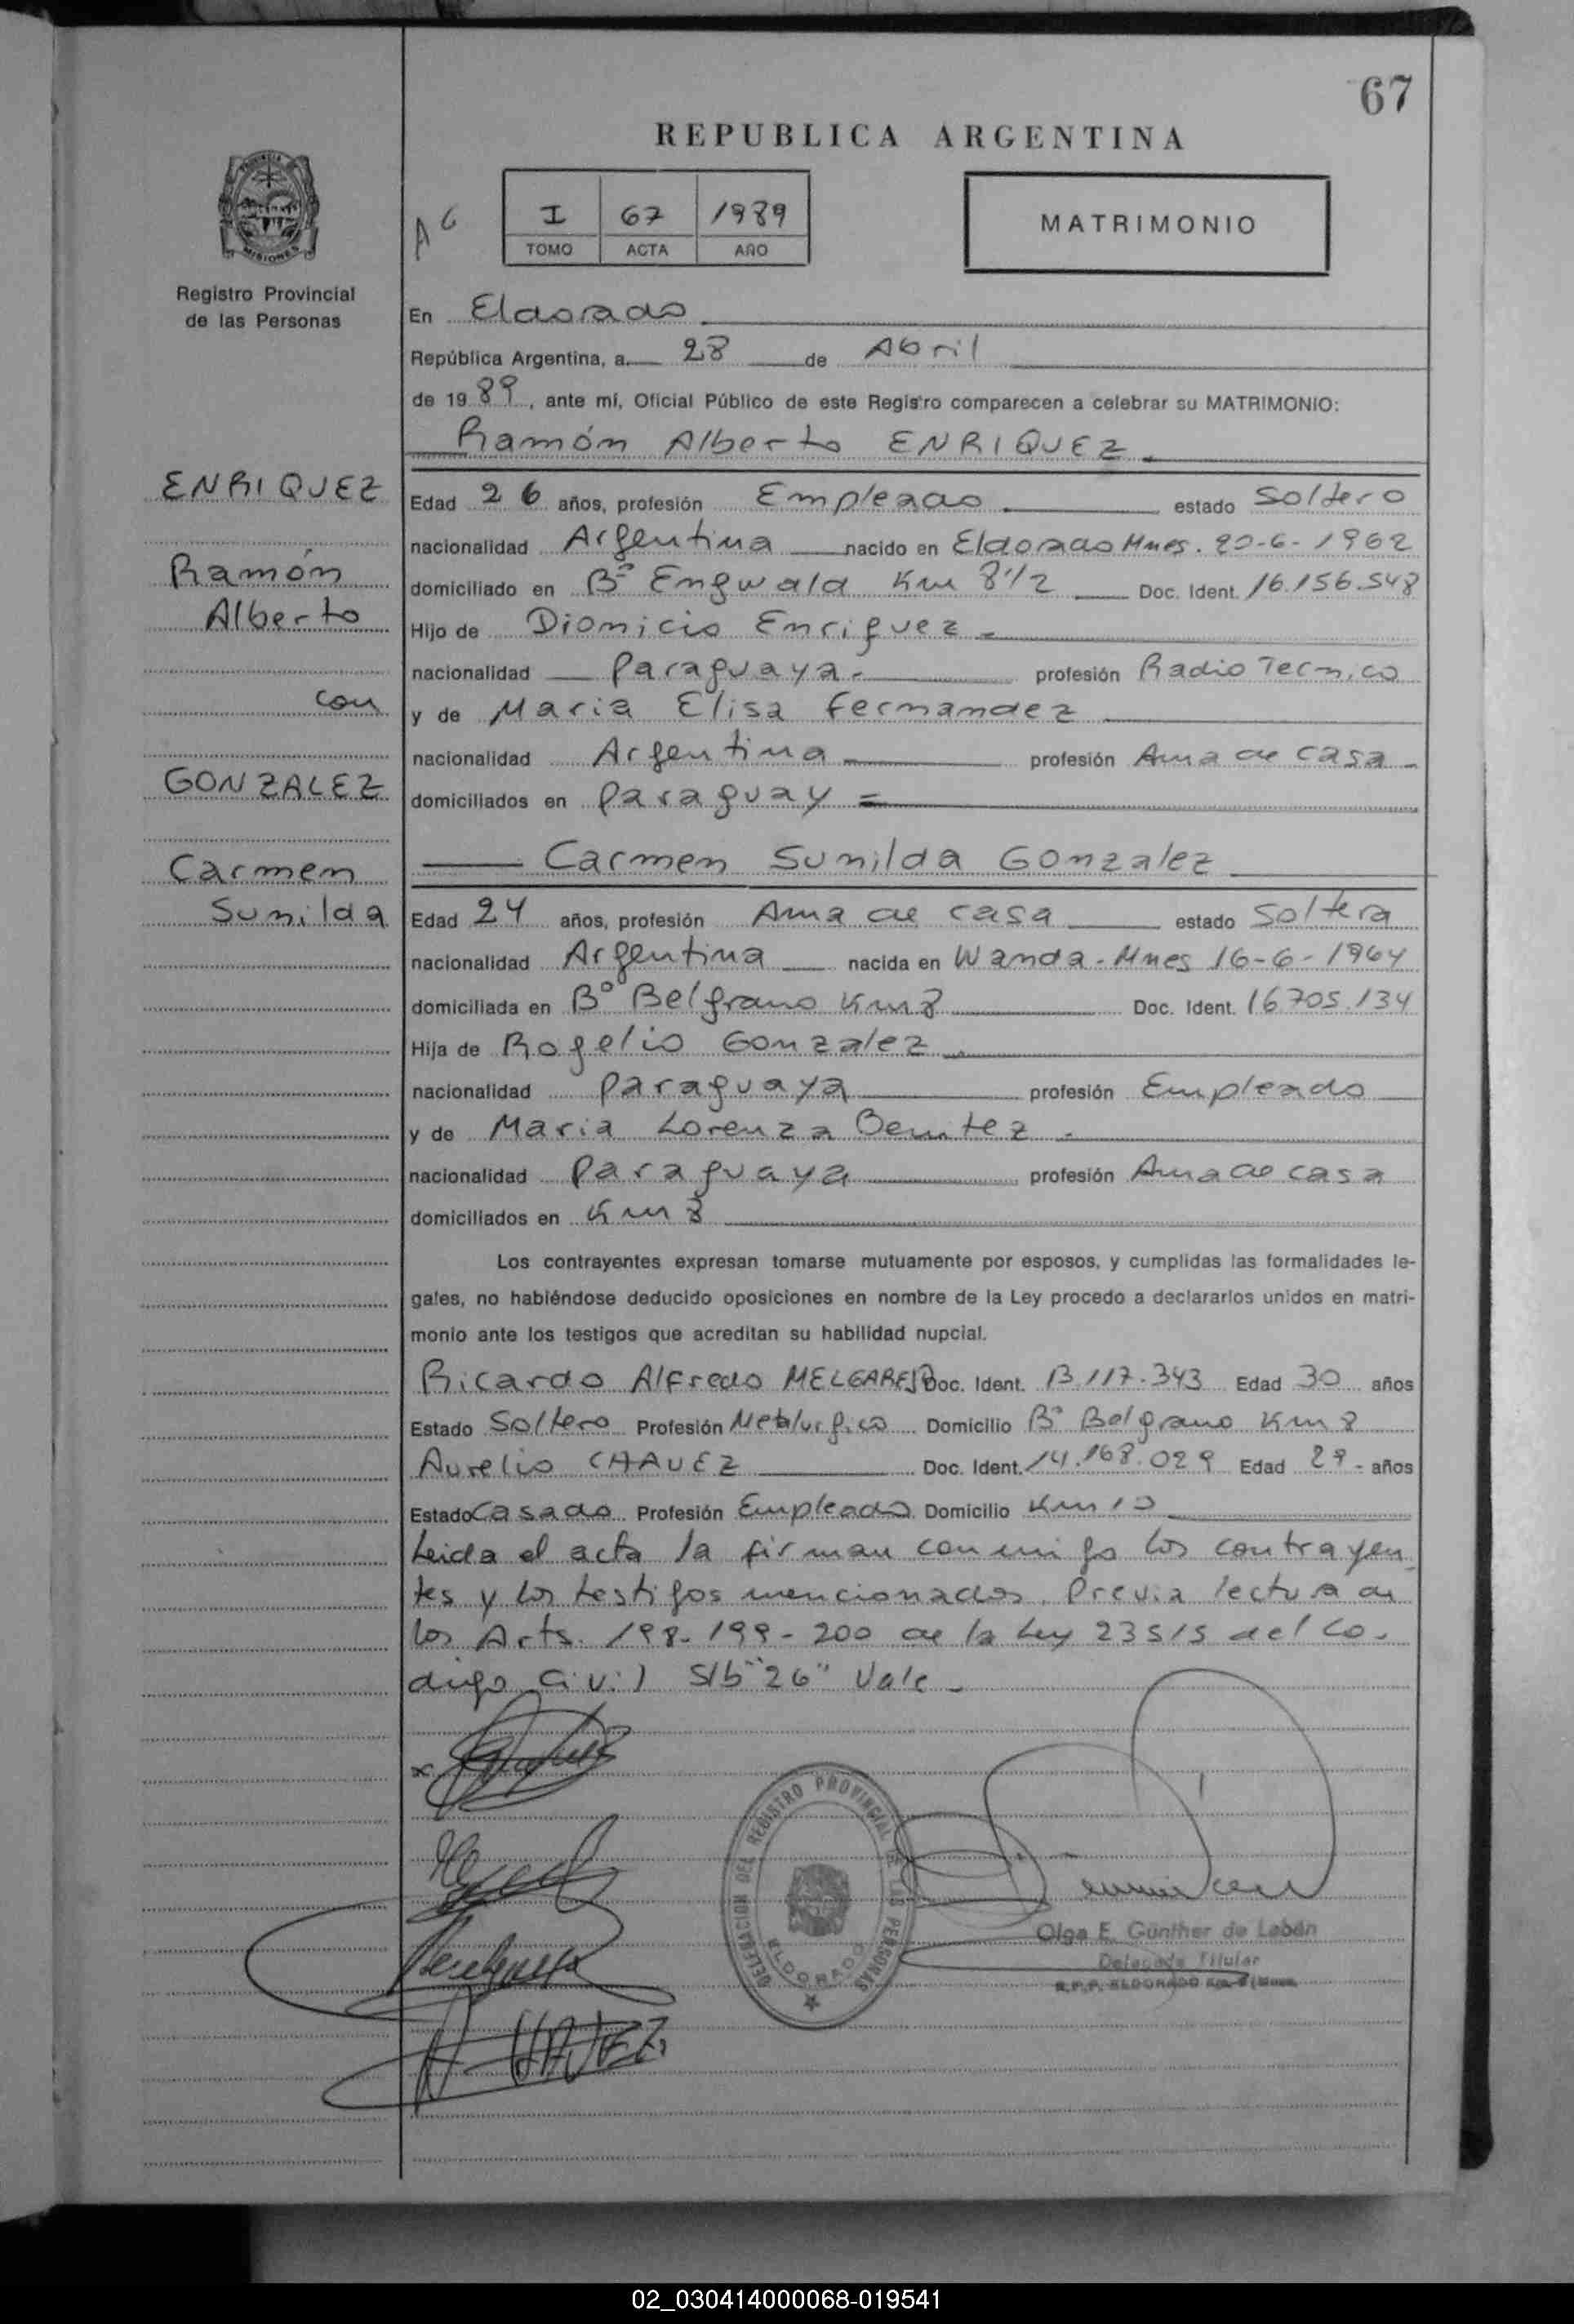 67
REPUBLICA ARGENTINA
PROVINCIA DE
MISIONES
Registro Provincial
de las Personas
I 67 1989
TOMO ACTA AÑO
MATRIMONIO
En Eldorado
República Argentina, a 28 de Abril
de 1989, ante mí, Oficial Público de este Registro comparecen a celebrar su MATRIMONIO:
Ramón Alberto ENRIQUEZ
ENRIQUEZ
Ramón
Alberto
con
GONZALEZ
Carmen
Sunilda
Edad 26 años, profesión Empleado estado Soltero
nacionalidad Argentina nacido en Eldorado Mnes. 20-6-1962
domiciliado en Bº Engwald Km 8 1/2 Doc. Ident. 16.156.548
Hijo de Dionicio Enriquez
nacionalidad Paraguaya profesión Radio Tecnico
y de Maria Elisa Fernandez
nacionalidad Argentina profesión Ama de casa
domiciliados en Paraguay
Carmen Sunilda Gonzalez
Edad 24 años, profesión Ama de casa estado Soltera
nacionalidad Argentina nacida en Wanda-Mnes 16-6-1964
domiciliada en Bº Belgrano Km 8 Doc. Ident. 16.705.134
Hija de Rogelio Gonzalez
nacionalidad Paraguaya profesión Empleado
y de Maria Lorenza Benitez
nacionalidad Paraguaya profesión Ama de casa
domiciliados en Km 8
Los contrayentes expresan tomarse mutuamente por esposos, y cumplidas las formalidades le-
gales, no habiéndose deducido oposiciones en nombre de la Ley procedo a declararlos unidos en matri-
monio ante los testigos que acreditan su habilidad nupcial.
Ricardo Alfredo MELGAREJO Doc. Ident. 13.117.343 Edad 30 años
Estado Soltero Profesión Metalurgico Domicilio Bº Belgrano Km 8
Aurelio CHAVEZ Doc. Ident. 14.168.029 Edad 29 años
Estado Casado Profesión Empleado Domicilio Km 10
Leida el acta la firman conmigo los contrayen
tes y los testigos mencionados. Previa lectura de
los Arts. 198-199-200 de la Ley 23515 del Co-
digo Civil S/b "26" Vale
DELEGACION DEL REGISTRO PROVINCIAL DE LAS PERSONAS
ELDORADO
Olga E. Günther de Lebán
Delegada Titular
R.P.P. ELDORADO Km. 8 (Mnes.
A. CHAVEZ
02_030414000068-019541